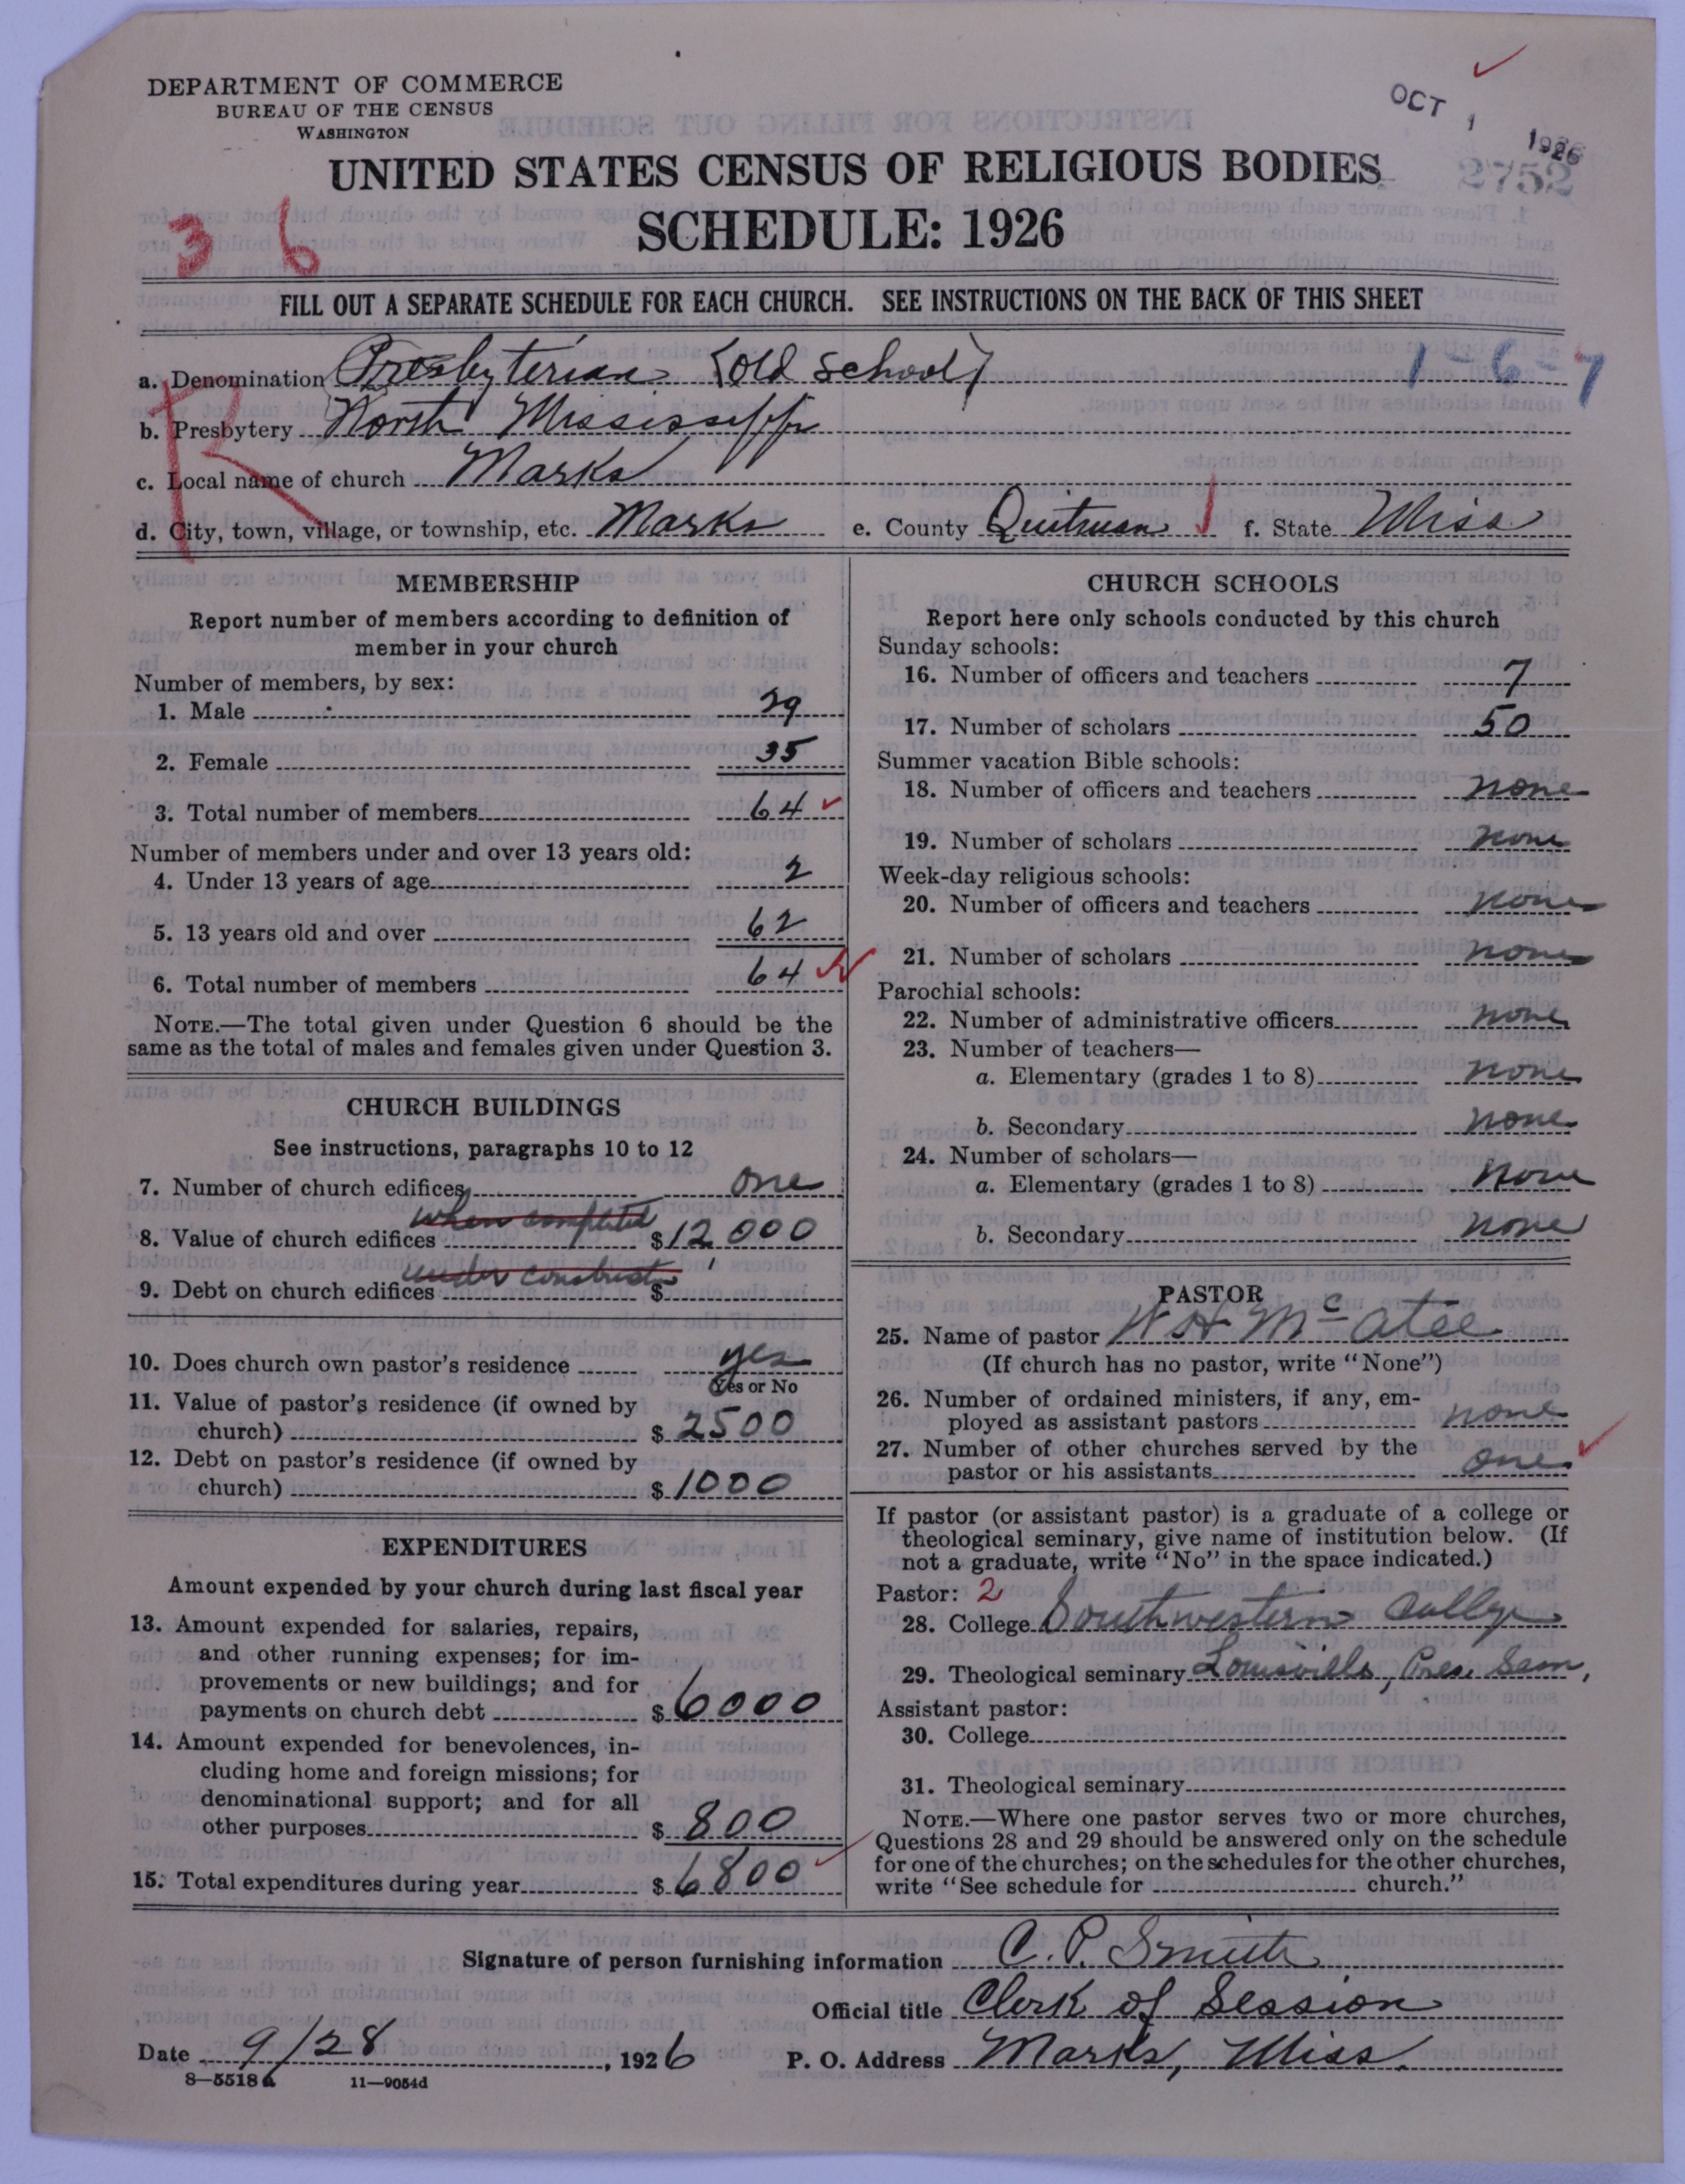 DEPARTMENT OF COMMERCE
BUREAU OF THE CENSUS
WASHINGTON
OCT 1 1926
2752
UNITED STATES CENSUS OF RELIGIOUS BODIES
SCHEDULE: 1926
36
FILL OUT A SEPARATE SCHEDULE FOR EACH CHURCH. SEE INSTRUCTIONS ON THE BACK OF THIS SHEET
a. Denomination Presbyterian (Old School) 1-6-7
b. Presbytery North Mississippi
R
c. Local name of church Marks
d. City, town, village, or township, etc. Marks e. County Quitman f. State Miss
MEMBERSHIP
Report number of members according to definition of
member in your church
Number of members, by sex:
1. Male 29
2. Female 35
3. Total number of members 64
Number of members under and over 13 years old:
4. Under 13 years of age 2
5. 13 years old and over 62
6. Total number of members 64
NOTE.—The total given under Question 6 should be the
same as the total of males and females given under Question 3.
CHURCH BUILDINGS
See instructions, paragraphs 10 to 12
7. Number of church edifices one
when completed
8. Value of church edifices $12,000
under construction
9. Debt on church edifices $
10. Does church own pastor's residence yes
Yes or No
11. Value of pastor's residence (if owned by
church) $2500
12. Debt on pastor's residence (if owned by
church) $1000
EXPENDITURES
Amount expended by your church during last fiscal year
13. Amount expended for salaries, repairs,
and other running expenses; for im-
provements or new buildings; and for
payments on church debt $6000
14. Amount expended for benevolences, in-
cluding home and foreign missions; for
denominational support; and for all
other purposes $800
15. Total expenditures during year $6800
CHURCH SCHOOLS
Report here only schools conducted by this church
Sunday schools:
16. Number of officers and teachers 7
17. Number of scholars 50
Summer vacation Bible schools:
18. Number of officers and teachers none
19. Number of scholars none
Week-day religious schools:
20. Number of officers and teachers none
21. Number of scholars none
Parochial schools:
22. Number of administrative officers none
23. Number of teachers—
a. Elementary (grades 1 to 8) none
b. Secondary none
24. Number of scholars—
a. Elementary (grades 1 to 8) none
b. Secondary none
PASTOR
25. Name of pastor W H McAtee
(If church has no pastor, write "None")
26. Number of ordained ministers, if any, em-
ployed as assistant pastors none
27. Number of other churches served by the
pastor or his assistants one
If pastor (or assistant pastor) is a graduate of a college or
theological seminary, give name of institution below. (If
not a graduate, write "No" in the space indicated.)
Pastor: 2
28. College Southwestern College
29. Theological seminary Louisville, Pres. Sem,
Assistant pastor:
30. College
31. Theological seminary
NOTE.—Where one pastor serves two or more churches,
Questions 28 and 29 should be answered only on the schedule
for one of the churches; on the schedules for the other churches,
write "See schedule for church."
Signature of person furnishing information C. P. Smith
Official title Clerk of Session
Date 9/28, 1926 P. O. Address Marks, Miss.
8—5518a 11—9054d